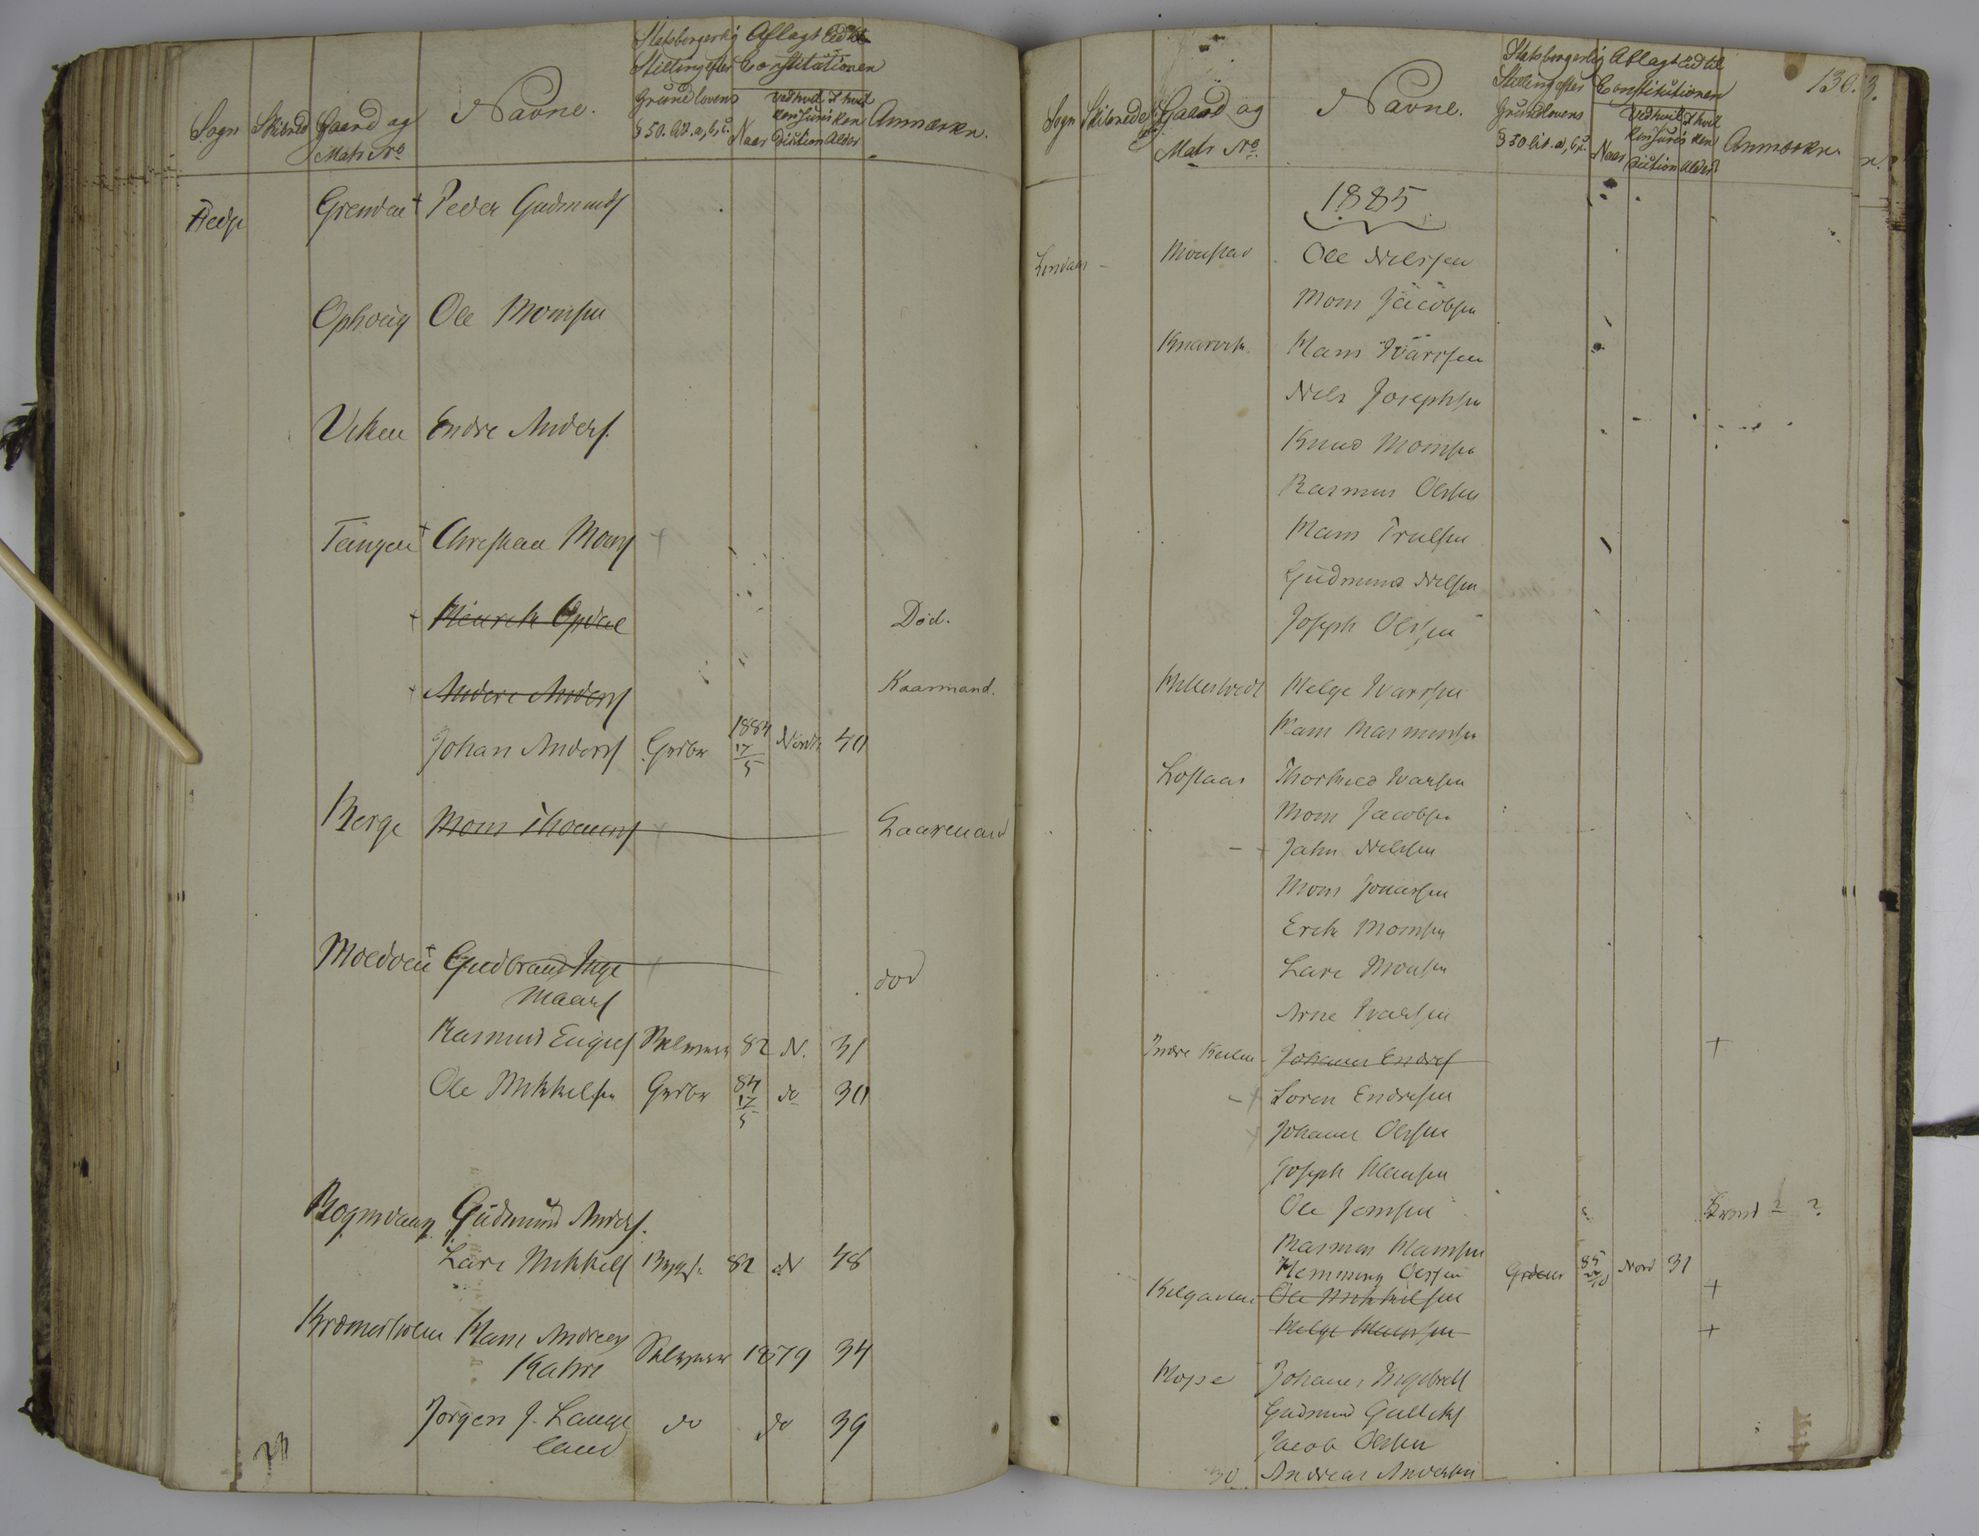 Sogn Skibred Gaard og Matr No Navne. Statsborgerlig Stilling efter Grundlovens § 50. lit. a, b, c. Aflagt Eed til Constitutionen Naar Ved hvil ken Juris diction I hvil ken Alder Anmærkn.
Hedse Grenden + Peder Gudmunds
Ophoug Ole Monsen
Viken Endre Anders.
Tangen + Christian Mons +
+ Henrik Opdal Død.
+ Anders Anders Kaarmand.
Johan Anders Grdbr 1884 17/5 Nordh 40
Berge Mons Thomas Kaarmand
Gudbrand Inge
maars død
Rasmus Selveier 82 N. 31
Ole Mikkelsen Grdbr 84 17/5 do 30
Gudmund Anders.
Lars Mikkels Bygs. 82 N 48
Hans Andreas
Selveier 1879 34
Jørgen J. Lange
land do do 39
23
Sogn Skibrede Gaard og Matr No Navne. Statsborgerlig Stilling efter Grundlovens § 50 lit. a, b, c. Aflagt Eed til Constitutionen Naar Ved hvil ken Juris diction I hvil ken Alder Anmærkn. 130.
1885
Lindaas - Monstad Ole Nilssen
Mons Jacobsen
Knarvik Hans Ivarssen
Nils Josephsen
Knud Monsen
Rasmus Olssen
Hans Trulsen
Gudmund Nilsen
Joseph Olssen
Helge Ivarssen
Hans Rasmussen
Lostaas Thorkild Ivarsen
Mons Jacobsen
- + Jahn Nilssen
Mons Jonassen
Erik Monsen
Lars Monsen
Arne Ivarsen
Indre Johannes Endres +
- + Soren Endresen
+ Johannes Olssen
Joseph Hansen
Ole Jonssen ?
Rasmus Hansen
Hemming Olssen 85 Nord 31
Ole Mikkelsen +
Helge Hanssen +
Hope Johannes Ingebrets
Gudmund Gulleks
Jacob Olssen
30 Andreas Andersen